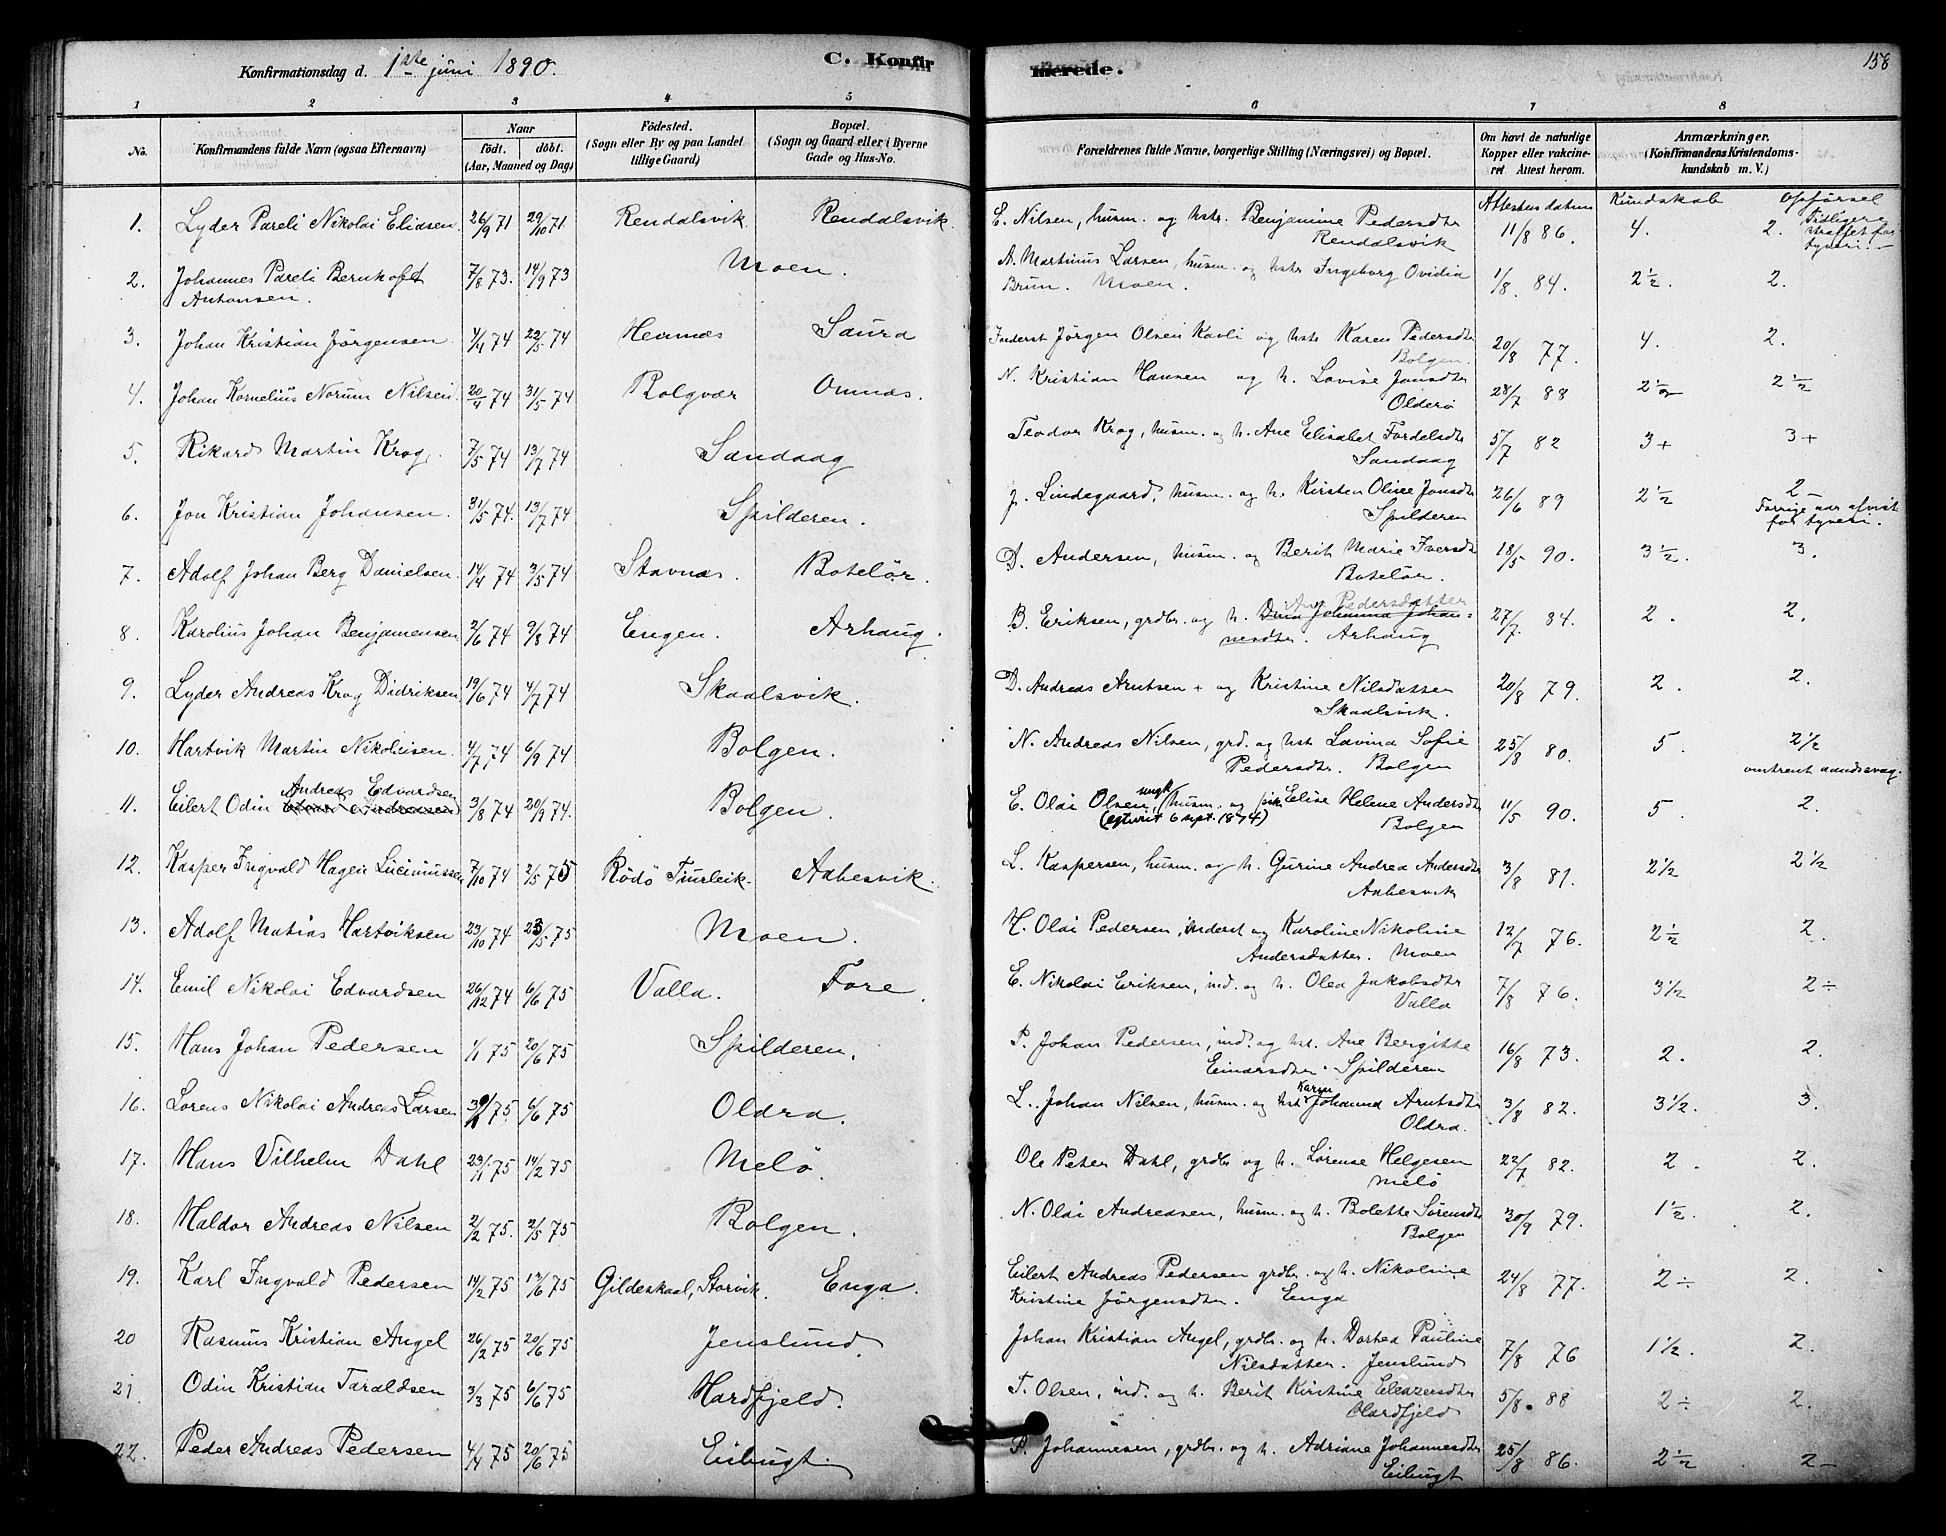 Konfirmationsdag d. 1ste juni 1890.
C. Konfir
merede.
158
1 2 3 4 5 6 7 8
No.
Konfirmandens fulde Navn (ogsaa Efternavn)
Naar
födt. döbt.
(Aar, Maaned og Dag)
Födested.
(Sogn eller By og paa Landet
tillige Gaard)
Bopæl.
(Sogn og Gaard eller i Byerne
Gade og Hus-No.
Forældrenes fulde Navne, borgerlige Stilling (Næringsvei) og Bopæl.
Om havt de naturlige
Kopper eller vakcine-
ret Attest herom.
Anmærkninger.
(Konfirmandens Kristendoms-
kundskab m. V.)
Attestens datum Kundskab Opförsel
1. Lyder Pareli Nikolai Eliasen. 26/9 71 29/10 71 Rendalsvik Rendalsvik. E. Nilsen, husm. og hstr. Benjamine Pedersdtr 11/8 86. 4. 2. Tidligere
Rendalsvik straffet for
tyveri.
2. Johannes Pareli Bernhoft 7/8 73. 14/9 73 Moen. A. Martinus Larsen, husm. og hstr Ingeborg Ovidia 1/8. 84. 2½. 2.
Antonsen. Brun. Moen.
3. Johan Kristian Jörgensen. 4/4 74 22/5 74 Hemnæs Saura Inderst Jörgen Olsen Kavli og hstr Karen Pedersdtr 20/8 77. 4. 2.
Bolgen.
4. Johan Kornelius Norum Nilsen. 20/4 74 31/5 74 Bolgvær Omnæs. N. Kristian Hansen og h. Lovise Jonsdtr 28/7 88 2½ 2½
Olderö
5. Rikard Martin Krog. 7/5 74 13/7 74 Sandaag Teodor Krog, husm. og h. Ane Elisabet Fordelsdtr 5/7 82 3+ 3+
Sandaag
6. Jon Kristian Johansen. 31/5 74. 13/7 74 Spilderen. J. Lindegaard, husm. og h. Kirsten Oline Jonsdtr 26/6 89 2½ 2–
Spilderen Forrige aar afvist
for tyveri.
7. Adolf Johan Berg Danielsen. 14/4 74 3/5 74 Stavnæs. Botelör. D. Andersen, husm. og Berit Marie Iversdtr 18/5 90. 3½. 3.
Botelör.
8. Karolius Johan Benjamensen 2/6 74 9/8 74 Engen. Arhaug. B. Eriksen, grdbr. og h. Dina Johanna Johan- 27/7. 84. 2. 2.
Pedersdatter
nesdtr. Arhaug
9. Lyder Andreas Krog Didriksen 19/6 74 4/7 74 Skaalsvik. D. Andreas Arntsen + og Kristine Nilsdatter 20/8 79. 2. 2.
Skaalsvik.
10. Hartvik Martin Nikolaisen. 4/7 74 6/9 74 Bolgen. N. Andreas Nilsen, grd. og hst Lovina Sofie 25/8 80. 5. 2½
Pedersdtr. Bolgen omtrent aandssvag.
11. Eilert Odin Andreas Edvardsen 3/8 74 20/9 74. Bolgen. E. Olai Olsen, ungk husm. og pik. Elise Helene Andersdtr 11/5 90. 5. 2.
(egteviet 6 sept. 1874) Bolgen
12. Kasper Ingvald Hagen Lucimussen 7/10 74 2/5 75 Rödö Tjurleik. Aabesvik. L. Kaspersen, husm. og h. Gurine Andrea Andersdtr 3/8 81. 2½ 2½
Aabesvik
13. Adolf Matias Hartviksen 23/10 74 23/5 75 Moen. H. Olai Pedersen, inderst og Karoline Nikoline 12/7 76. 2½ 2.
Andersdatter. Moen
14. Emil Nikolai Edvardsen 26/12 74 6/6 75 Valla. Fore. E. Nikolai Eriksen, ind. og h. Olea Jakobsdtr 7/8 76. 3½ 2÷
Valla
15. Hans Johan Pedersen 1/1 75 20/6 75 Spilderen. P. Johan Pedersen, ind. og hst. Ane Bergitte 16/8 73. 2. 2.
Einarsdtr. Spilderen
16. Lorens Nikolai Andreas Larsen 75. 6/6 75 Oldra. L. Johan Nilsen, husm. og hst Karen Johanna Arntsdtr 3/8 82. 3½. 3.
Oldra.
17. Hans Vilhelm Dahl 23/1 75 14/2 75 Melö. Ole Peter Dahl, grdbr og h. Lorense Helgesen 22/7 82. 2. 2.
Melö
18. Haldor Andreas Nilsen 2/2 75. 2/5 75. Bolgen. N. Olai Andreasen, husm. og h. Bolette Sörensdtr 30/9 79. 1½. 2.
Bolgen
19. Karl Ingvald Pedersen 14/2 75 13/6 75 Gildeskaal, Storvik. Enga. Eilert Andreas Pedersen grdbr. og h. Nikoline 24/8 77. 2÷ 2.
Kristine Jörgensdtr. Enga
20 Rasmus Kristian Angel 26/2 75 20/6 75 Jenslund. Johan Kristian Angel, grdbr. og h. Dortea Pauline 7/8 76 1½. 2.
Nilsdatter. Jenslund
21 Odin Kristian Taraldsen 3/3 75 6/6 75 Hardfjeld. T. Olsen, ind. og h. Berit Kirstine Eleazersdtr 5/8. 88 2÷ 2.
Hardfjeld
22. Peder Andreas Pedersen 4/4 75 20/6 75 Eilugt. P. Johannesen, grdbr. og h. Adriane Johannesdtr 25/8 86. 2½ 2–
Eilugt